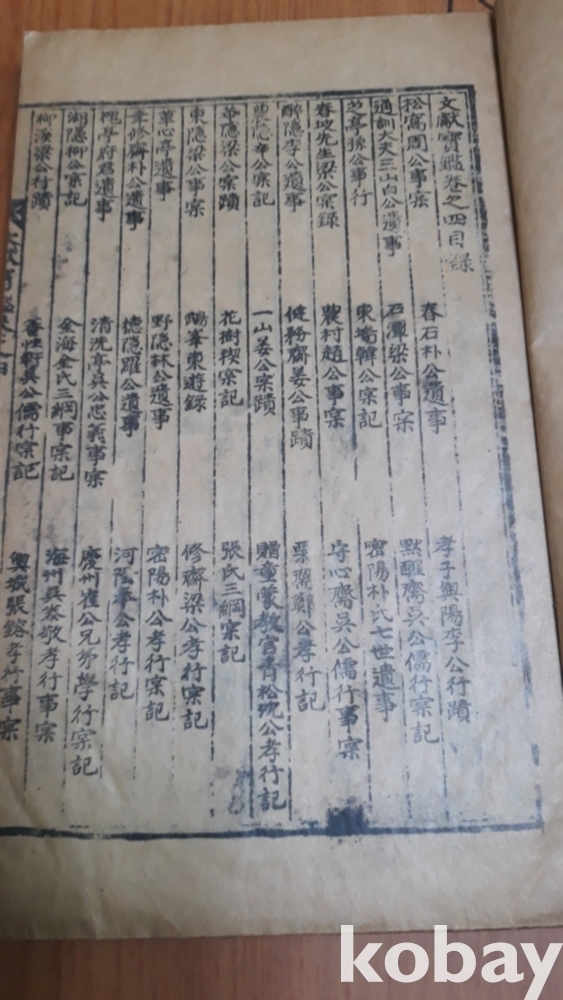 文獻寶鑑卷之四目錄
松窩周公事宲 春石朴公遺事 孝子興陽李公行蹟
通訓大夫三山白公遺事 石潭梁公事宲 默醒齋吳公儒行宲記
芝亭孫公事行 東韓公宲記 密陽朴氏七世遺事
春坡先生梁公宲錄 農村趙公事宲 守心齋吳公儒行事宲
醉隠李公遺事 健務齋姜公事蹟 栗齋鄭公孝行記
農隠辛公宲記 一山姜公宲蹟 贈童蒙教官青松沈公孝行記
華隠梁公宲蹟 花樹稧宲記 張氏三綱宲記
東隠梁公事宲 峯東遊錄 修齋梁公孝行宲記
心亭遺事 野隠林公遺事 密陽朴公孝行宲記
聿修齋朴公遺事 德隠羅公遺事 河隂奉公孝行記
槐亭府君遺事 清沈亭吳公忠義事宲 慶州崔公兄弟學行宲記
湖隠柳公宲記 金海金氏三綱事宲記 海州吳泰敬孝行事宲
柳溪梁公行蹟 養性軒吳公儒行宲記 興城張鎔孝行事宲
kobay